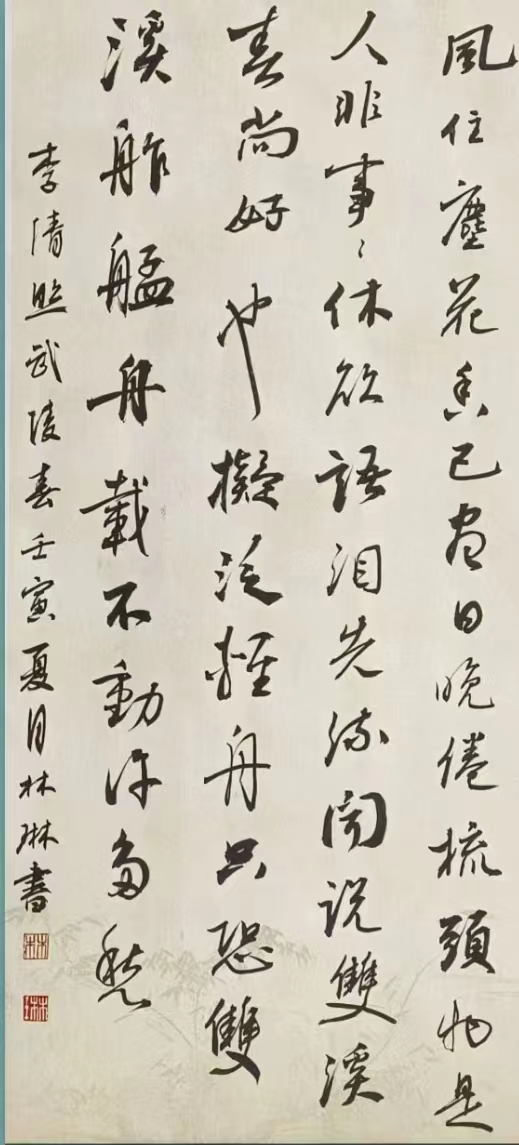 風住塵花香已盡日晚倦梳頭物是
人非事〻休欲語泪先流聞説雙溪
春尚好也擬泛輕舟只恐雙
溪舴艋舟載不動许多愁
李清照武陵春壬寅夏月林琳書
林
琳